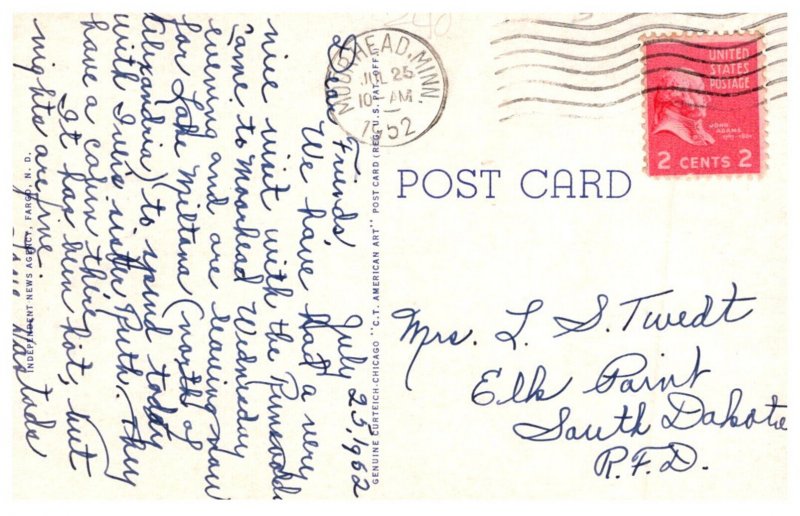 MOORHEAD, MINN.
JUL 25
10 AM
1952
UNITED
STATES
POSTAGE
JOHN
ADAMS
1797-1801
2 CENTS 2
POST CARD
Mrs. L. S. Twedt
Elk Point
South Dakota
R.F.D.
July 25, 1952
Dear Friends,
We have had a very
nice visit with the
came to Moorhead Wednesday
evening and are leaving now
for Lake Miltona (north of
Alexandria) to spend today
with sister Ruth. They
have a cabin there.
It has been hot, but
nights are fine.
GENUINE CURTEICH-CHICAGO "C.T. AMERICAN ART" POST CARD (REG. U.S. PAT. OFF.)
INDEPENDENT NEWS AGENCY, FARGO, N. D.